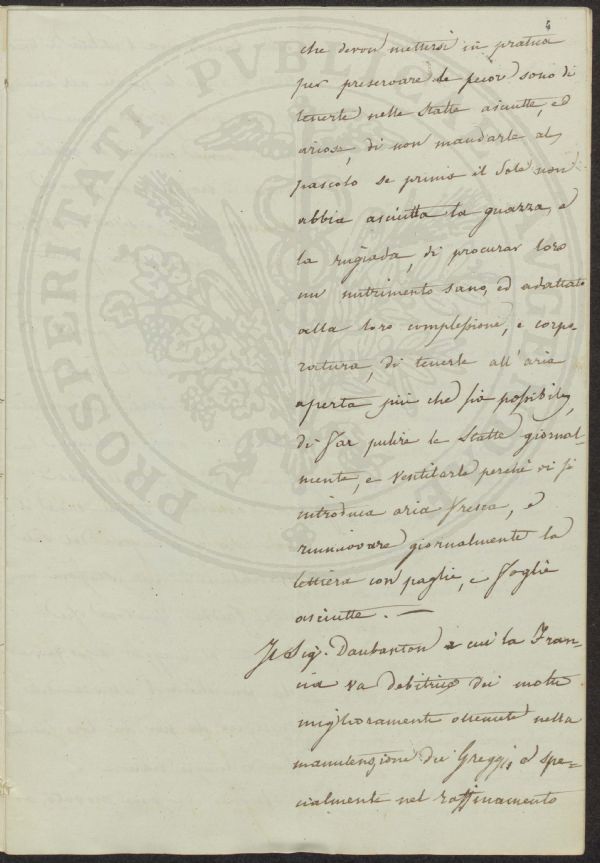 4
che devon mettersi in pratica
per preservare le pecore sono di
tenerle nelle Stalle asciutte, ed
ariose, di non mandarle al
pascolo se prima il Sole non
abbia asciutta la guazza, e
la rugiada, di procurar loro
un nutrimento sano, ed adattato
alla loro complessione, e corpo-
ratura, di tenerle all'aria
aperta più che sia possibile,
di far pulire le Stalle giornal-
mente, e ventilarle perchè vi si
introduca aria fresca, e
rinnovare giornalmente la
lettiera con paglie, e foglie
asciutte. —
Il Sig. Daubanton a cui la Fran-
cia va debitrice dei molti
miglioramenti ottenuti nella
manutenzione dei Greggi, e spe-
cialmente nel raffinamento
PROSPERITATI PUBLICAE AU